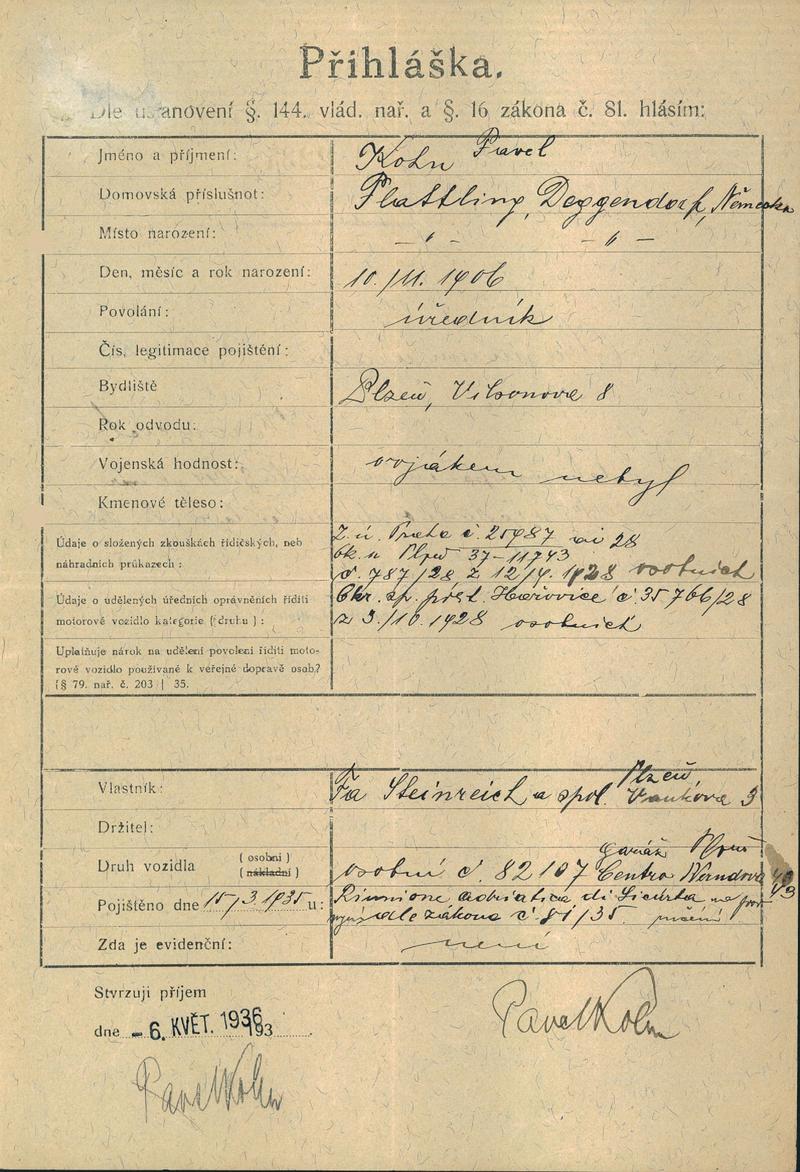 Přihláška.
Dle ustanovení §. 144. vlád. nař. a §. 16 zákona č. 81. hlásím:
Jméno a příjmení: Kohn Pavel
Domovská příslušnot: Plattling, Deggendorf, Německo
Místo narození: — " — — " —
Den, měsíc a rok narození: 10./11. 1906
Povolání: úředník
Čís, legitimace pojištění:
Bydliště Plzeň, Vilsonova 8
Rok odvodu:
Vojenská hodnost: vojákem nebyl
Kmenové těleso:
Z. ú. Praha č. 25987 28
Údaje o složených zkouškách řidičských, neb ok. ú Plzeň 37-11743
náhradních průkazech: č. 787/28 z 12/9. 1928 osobních
Údaje o udělených úředních oprávněních říditi Okr. sp. pol. Hořovice č. 35766/28
motorové vozidlo kategorie (:druhu): z 3./10. 1928 osobních
Uplatňuje nárok na udělení povolení říditi moto-
rové vozidlo používané k veřejné dopravě osob.?
[§ 79. nař. č. 203 | 35.
Vlastník: Fa Steinreich a spol. Plzeň, 3
Držitel:
Druh vozidla (osobní) (nákladní) osobní č. 82107 garáž Plzeň Centra
Pojištěno dne 15/3. 1935 u: Riunione adriatica di Sicurta na
dle zákona č. 81/35.
Zda je evidenční: není
Stvrzuji příjem
dne - 6. KVĚT. 1936 193
Pavel Kohn
Pavel Kohn